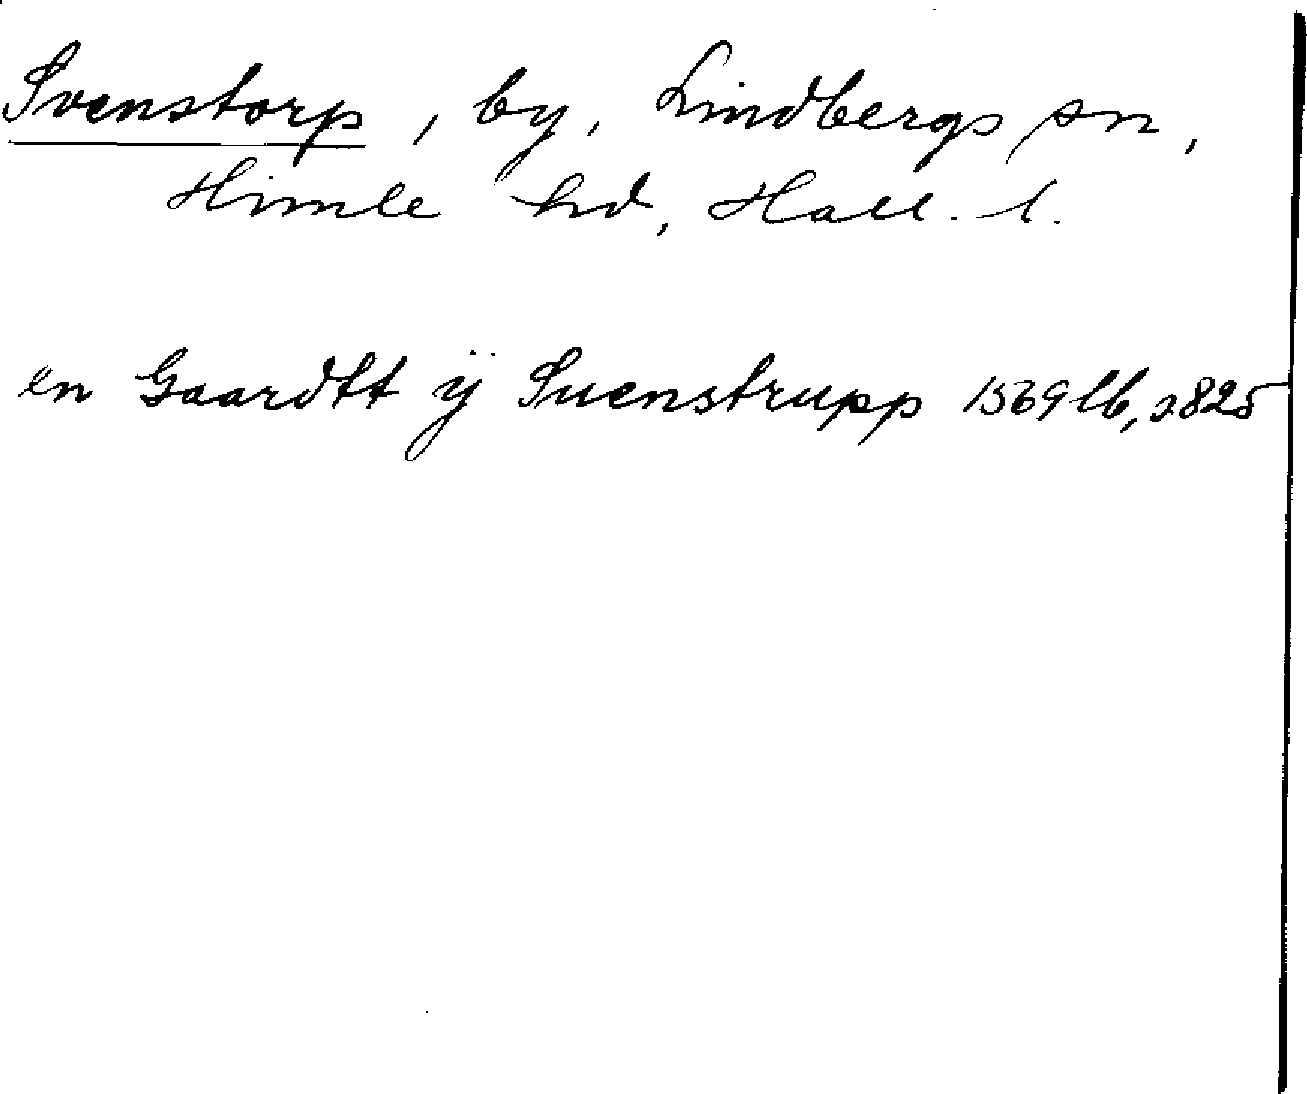 Svenstorp, by, Lindbergs sn,
Himle hd, Hall. l.
en Gaardtt ÿ Suenstrupp 1569 lb, s 825